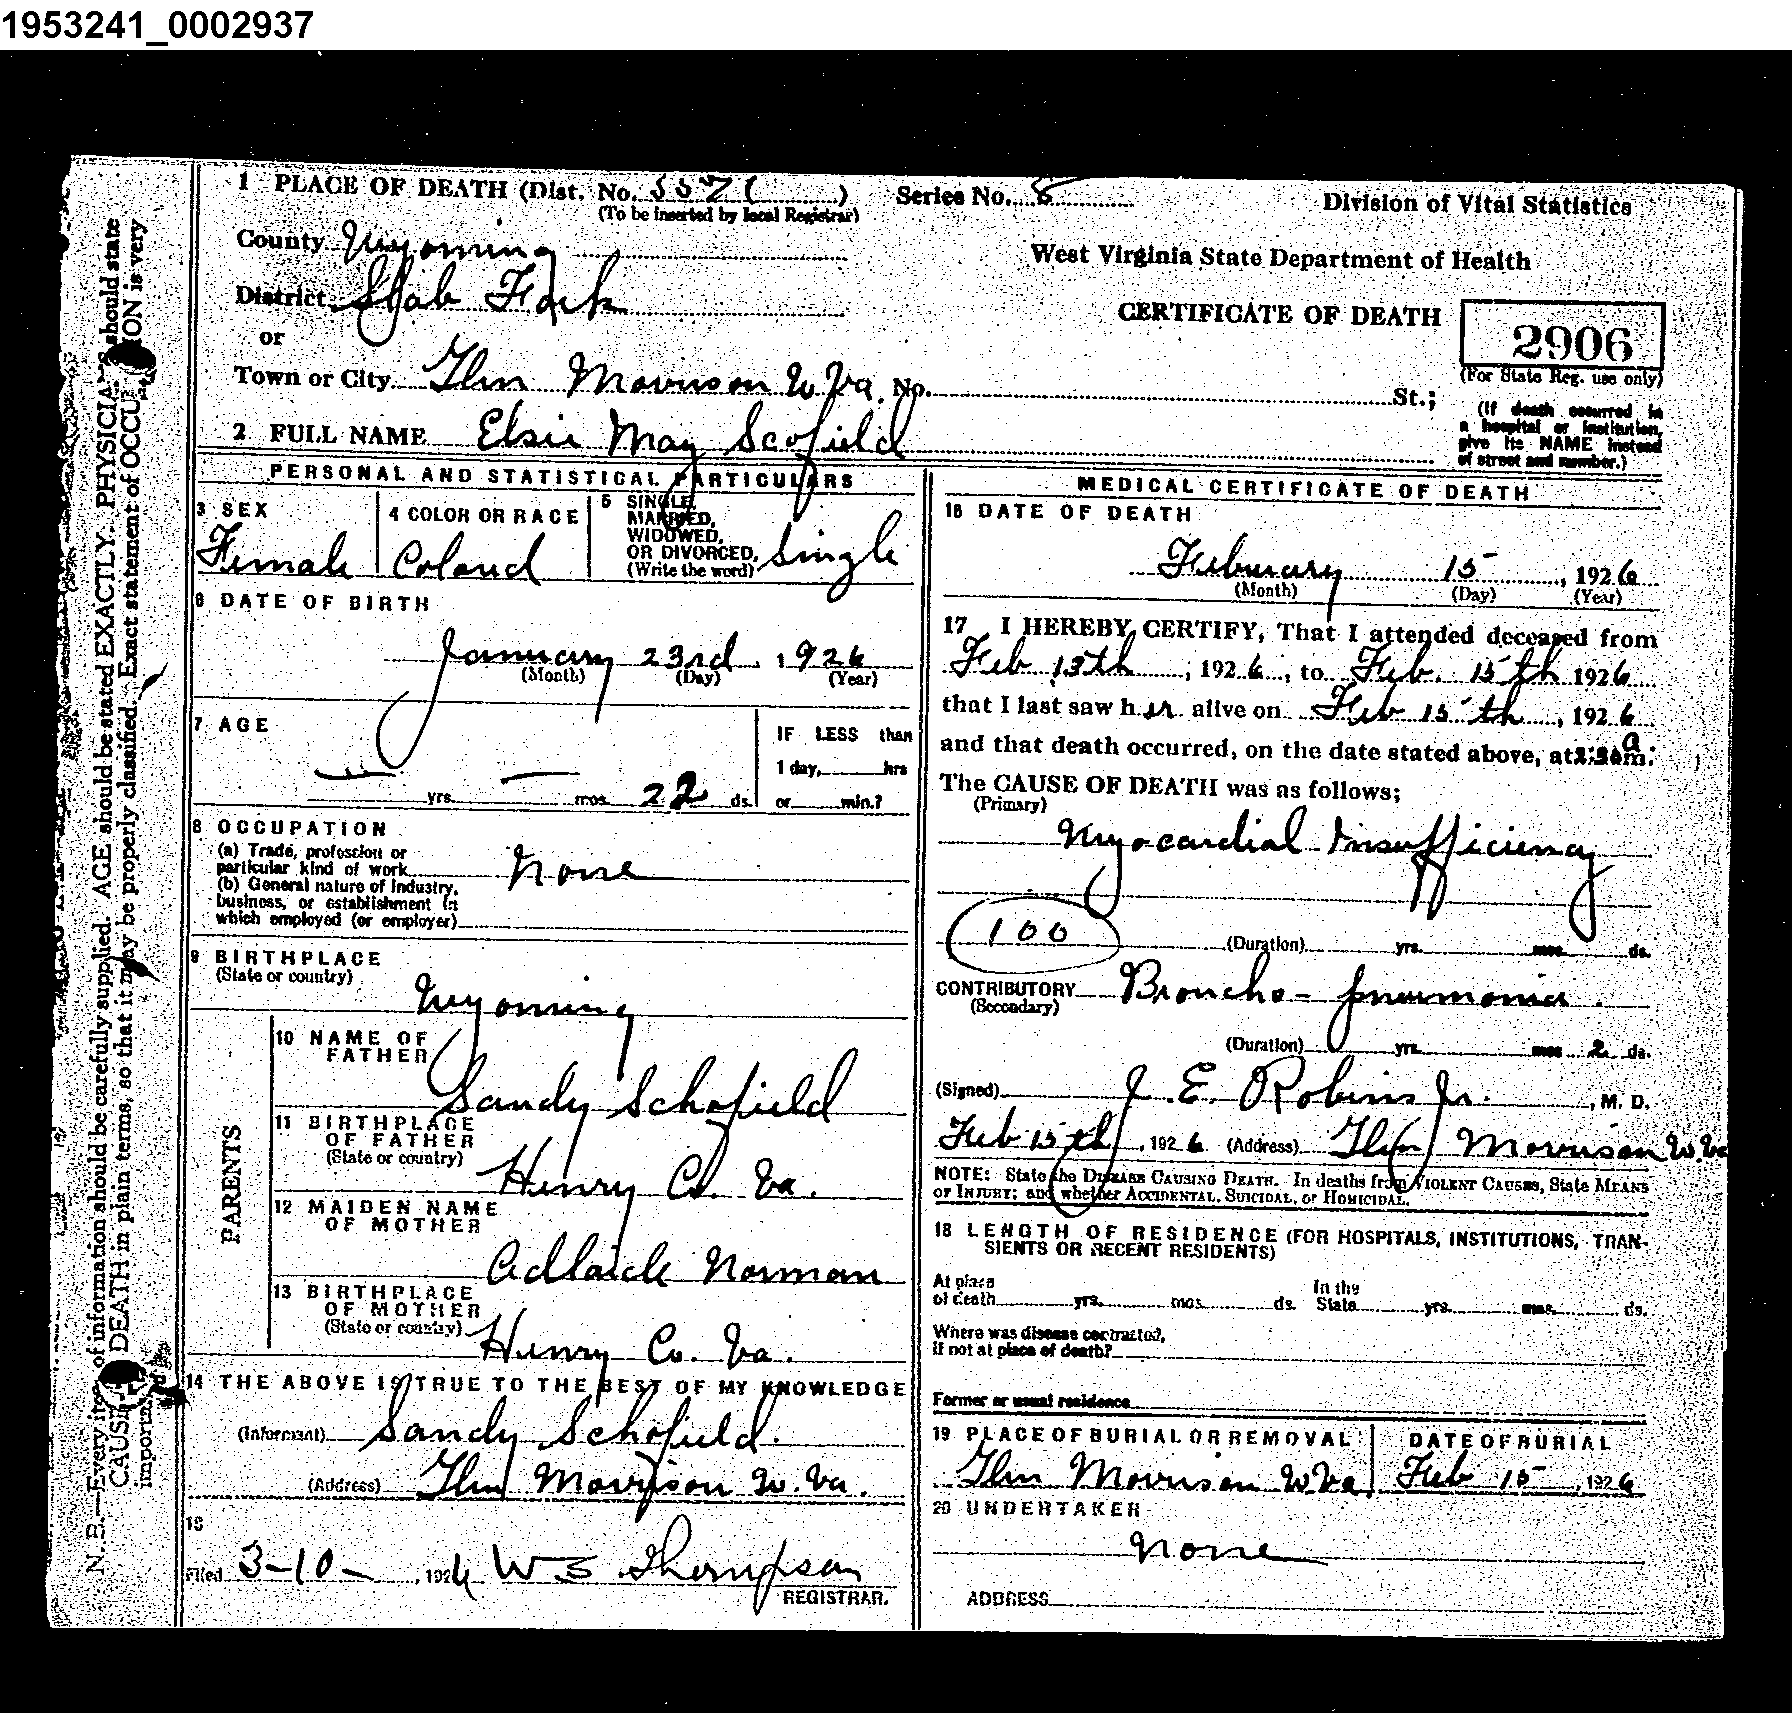 1953241_0002937
1 PLACE OF DEATH (Dist. No. 5571 ) Series No. 8 Division of Vital Statistics
(To be inserted by local Registrar)
County Wyoming
West Virginia State Department of Health
District Slab Fork
CERTIFICATE OF DEATH 2906
or
(For State Reg. use only)
Town or City Glen Morrison W Va. No. St.;
(If death occurred in
a hospital or institution,
give its NAME instead
of street and number.)
2 FULL NAME Elsie May Scofield
PERSONAL AND STATISTICAL PARTICULARS
3 SEX
Female
4 COLOR OR RACE
Colored
5 SINGLE,
MARRIED,
WIDOWED,
OR DIVORCED,
(Write the word) Single
6 DATE OF BIRTH
January 23rd, 1926
(Month) (Day) (Year)
7 AGE
— yrs. — mos. 22 ds.
IF LESS than
1 day, hrs
or min.?
8 OCCUPATION
(a) Trade, profession or
particular kind of work None
(b) General nature of industry,
business, or establishment in
which employed (or employer)
9 BIRTHPLACE
(State or country)
Wyoming
PARENTS
10 NAME OF
FATHER
Sandy Schofield
11 BIRTHPLACE
OF FATHER
(State or country)
Henry Co. Va.
12 MAIDEN NAME
OF MOTHER
Adlaide Norman
13 BIRTHPLACE
OF MOTHER
(State or country)
Henry Co. Va.
14 THE ABOVE IS TRUE TO THE BEST OF MY KNOWLEDGE
(Informant) Sandy Schofield.
(Address) Glen Morrison W. Va.
15
Filed 3-10-, 1926 W S Thompson
REGISTRAR.
MEDICAL CERTIFICATE OF DEATH
16 DATE OF DEATH
February 15, 1926
(Month) (Day) (Year)
17 I HEREBY CERTIFY, That I attended deceased from
Feb 13th, 1926, to Feb. 15th 1926
that I last saw her alive on Feb 15th, 1926
and that death occurred, on the date stated above, at a m.
The CAUSE OF DEATH was as follows;
(Primary)
Myocardial Insufficiency
100
(Duration) yrs. mos. ds.
CONTRIBUTORY Broncho-pneumonia.
(Secondary)
(Duration) yrs. mos 2 ds.
(Signed) J. E. Robins Jr., M. D.
Feb 15th, 1926 (Address) Glen Morrison W. Va
NOTE: State the DISEASE CAUSING DEATH. In deaths from VIOLENT CAUSES, State MEANS
OF INJURY; and whether ACCIDENTAL, SUICIDAL, or HOMICIDAL.
18 LENGTH OF RESIDENCE (FOR HOSPITALS, INSTITUTIONS, TRAN-
SIENTS OR RECENT RESIDENTS)
At place
of death yrs. mos. ds.
In the
State yrs. mos. ds.
Where was disease contracted,
if not at place of death?
Former or usual residence
19 PLACE OF BURIAL OR REMOVAL
Glen Morrison W Va.
DATE OF BURIAL
Feb 15, 1926
20 UNDERTAKER
None
ADDRESS
N. B.—Every item of information should be carefully supplied. AGE should be stated EXACTLY. PHYSICIANS should state
CAUSE DEATH in plain terms, so that it may be properly classified. Exact statement of OCCUPATION is very
important